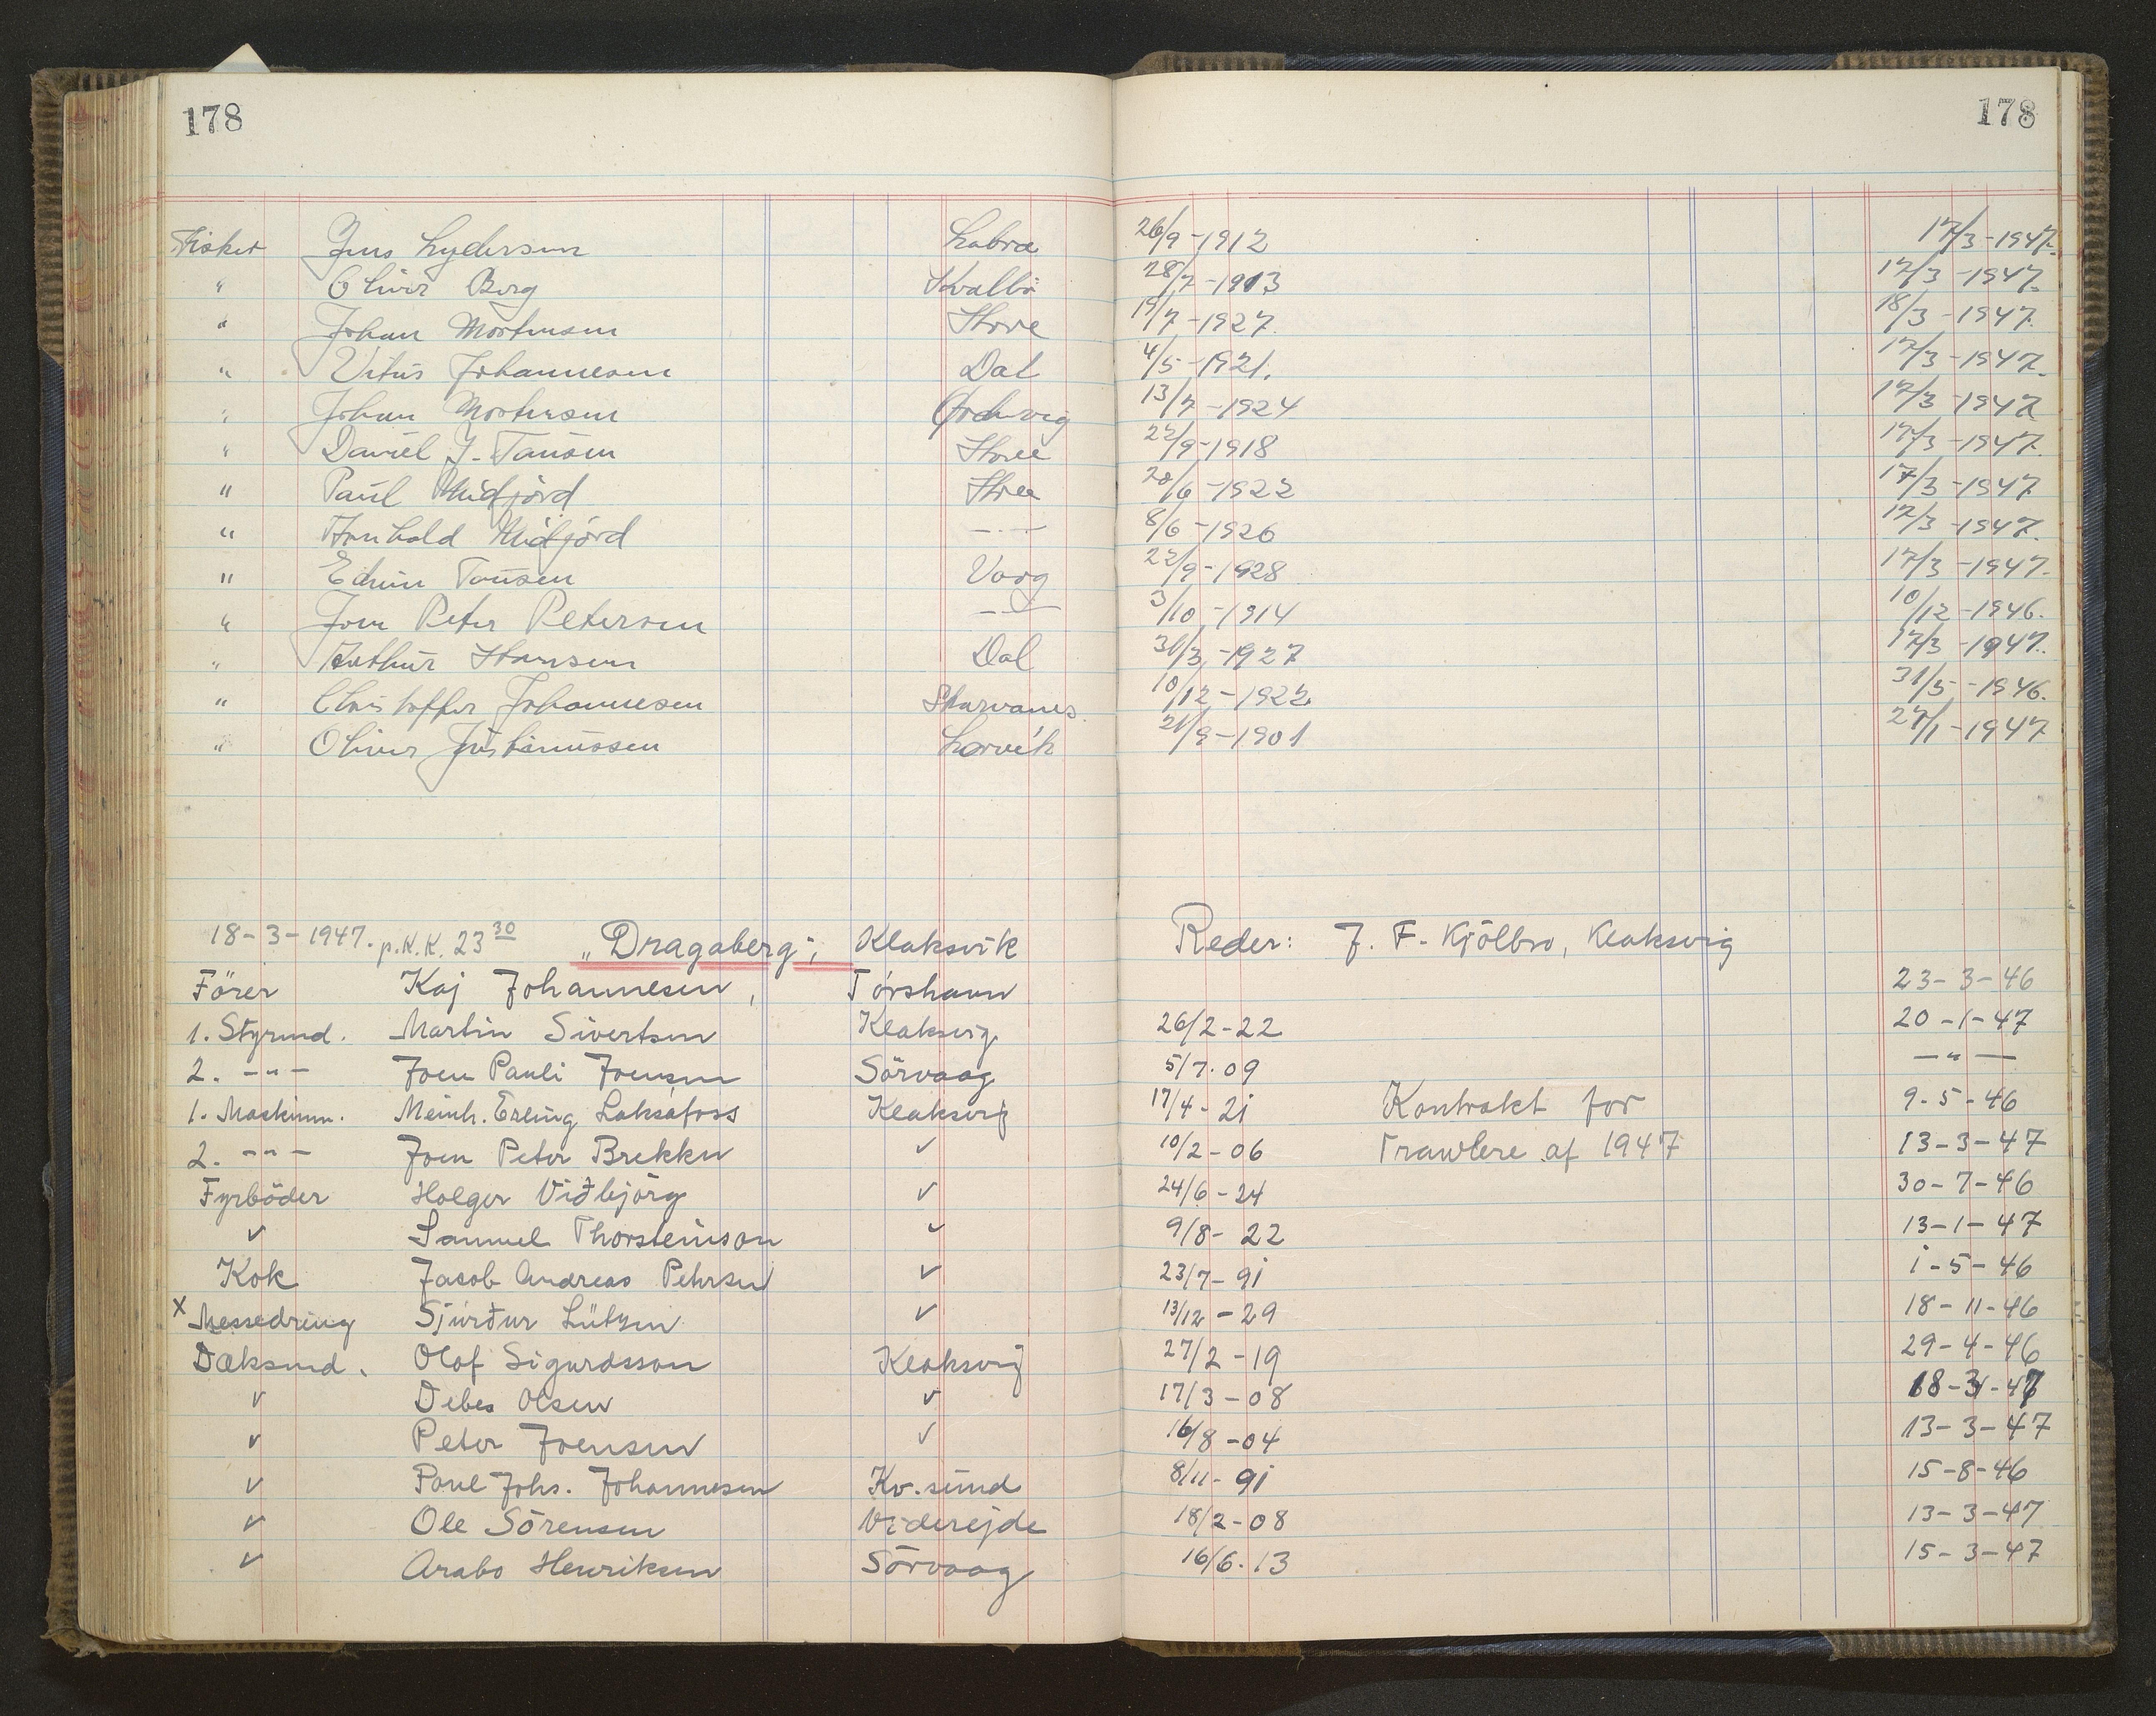 178 178
Fisker Jens Lydersen Labræ 26/9-1912 17/3-1947.
" Oliver Berg Kvalbö 28/7-1913 17/3-1947.
" Johan Mortensen Hove 19/7-1927. 18/3-1947.
" Vitus Johannesen Dal 4/5-1921. 17/3-1947.
" Johan Mortensen Ørdevig 13/7-1924 17/3-1947
" Daniel J. Tausen Hove 22/9-1918 17/3-1947.
" Paul Midfjörd Hove 20/6-1922 17/3-1947
" Midfjörd -"- 8/6-1926 17/3-1947.
" Edvin Tausen Vaag 22/9-1928 17/3-1947.
" Joen Peter Petersen -"- 3/10-1914 10/12-1946.
" Arthur Hansen Dal 31/3-1927 17/3-1947.
" Christoffer Johannesen Skarvanes. 10/12-1922 31/5-1946.
" Oliver Justinussen Larvík 21/9-1901 27/1-1947
18-3-1947. p.K.K. 23 30 "Dragaberg"; Klaksvik Reder: J. F. Kjölbro, Klaksvig
Förer Kaj Johannesen, Tórshavn 23-3-46
1. Styrmd. Martin Sivertsen Klaksvig 26/2-22 20-1-47
2. -"- Joen Pauli Joensen Sörvaag 5/7.09 -"-
1. Maskinm. Meinh. Erling Laksáfoss Klaksvig 17/4-21 Kontrakt for 9-5-46
2. -"- Joen Peter Brekken ✓ 10/2-06 Trawlere af 1947 13-3-47
Fyrböder Holger Viðbjörg ✓ 24/6-24 30-7-46
✓ Samuel Thorsteinson ✓ 9/8-22 13-1-47
Kok Jacob Andreas Petersen ✓ 23/7-91 1-5-46
x Messedreng Sjúrður Lützen ✓ 13/12-29 18-11-46
Dæksmd. Olaf Sigurdsson Klaksvig 27/2-19 29-4-46
✓ Debes Olsen ✓ 17/3-08 18-3-47
✓ Peter Joensen ✓ 16/8-04 13-3-47
✓ Poul Johs. Johannesen Kv.sund 8/11-91 15-8-46
✓ Ole Sörensen Viderejde 18/2-08 13-3-47
✓ Arabo Henriksen Sörvaag 16/6.13 15-3-47